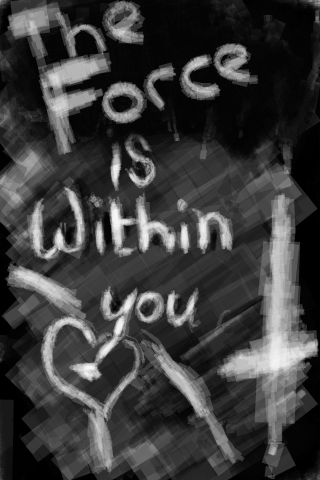 The
Force
is
Within
you